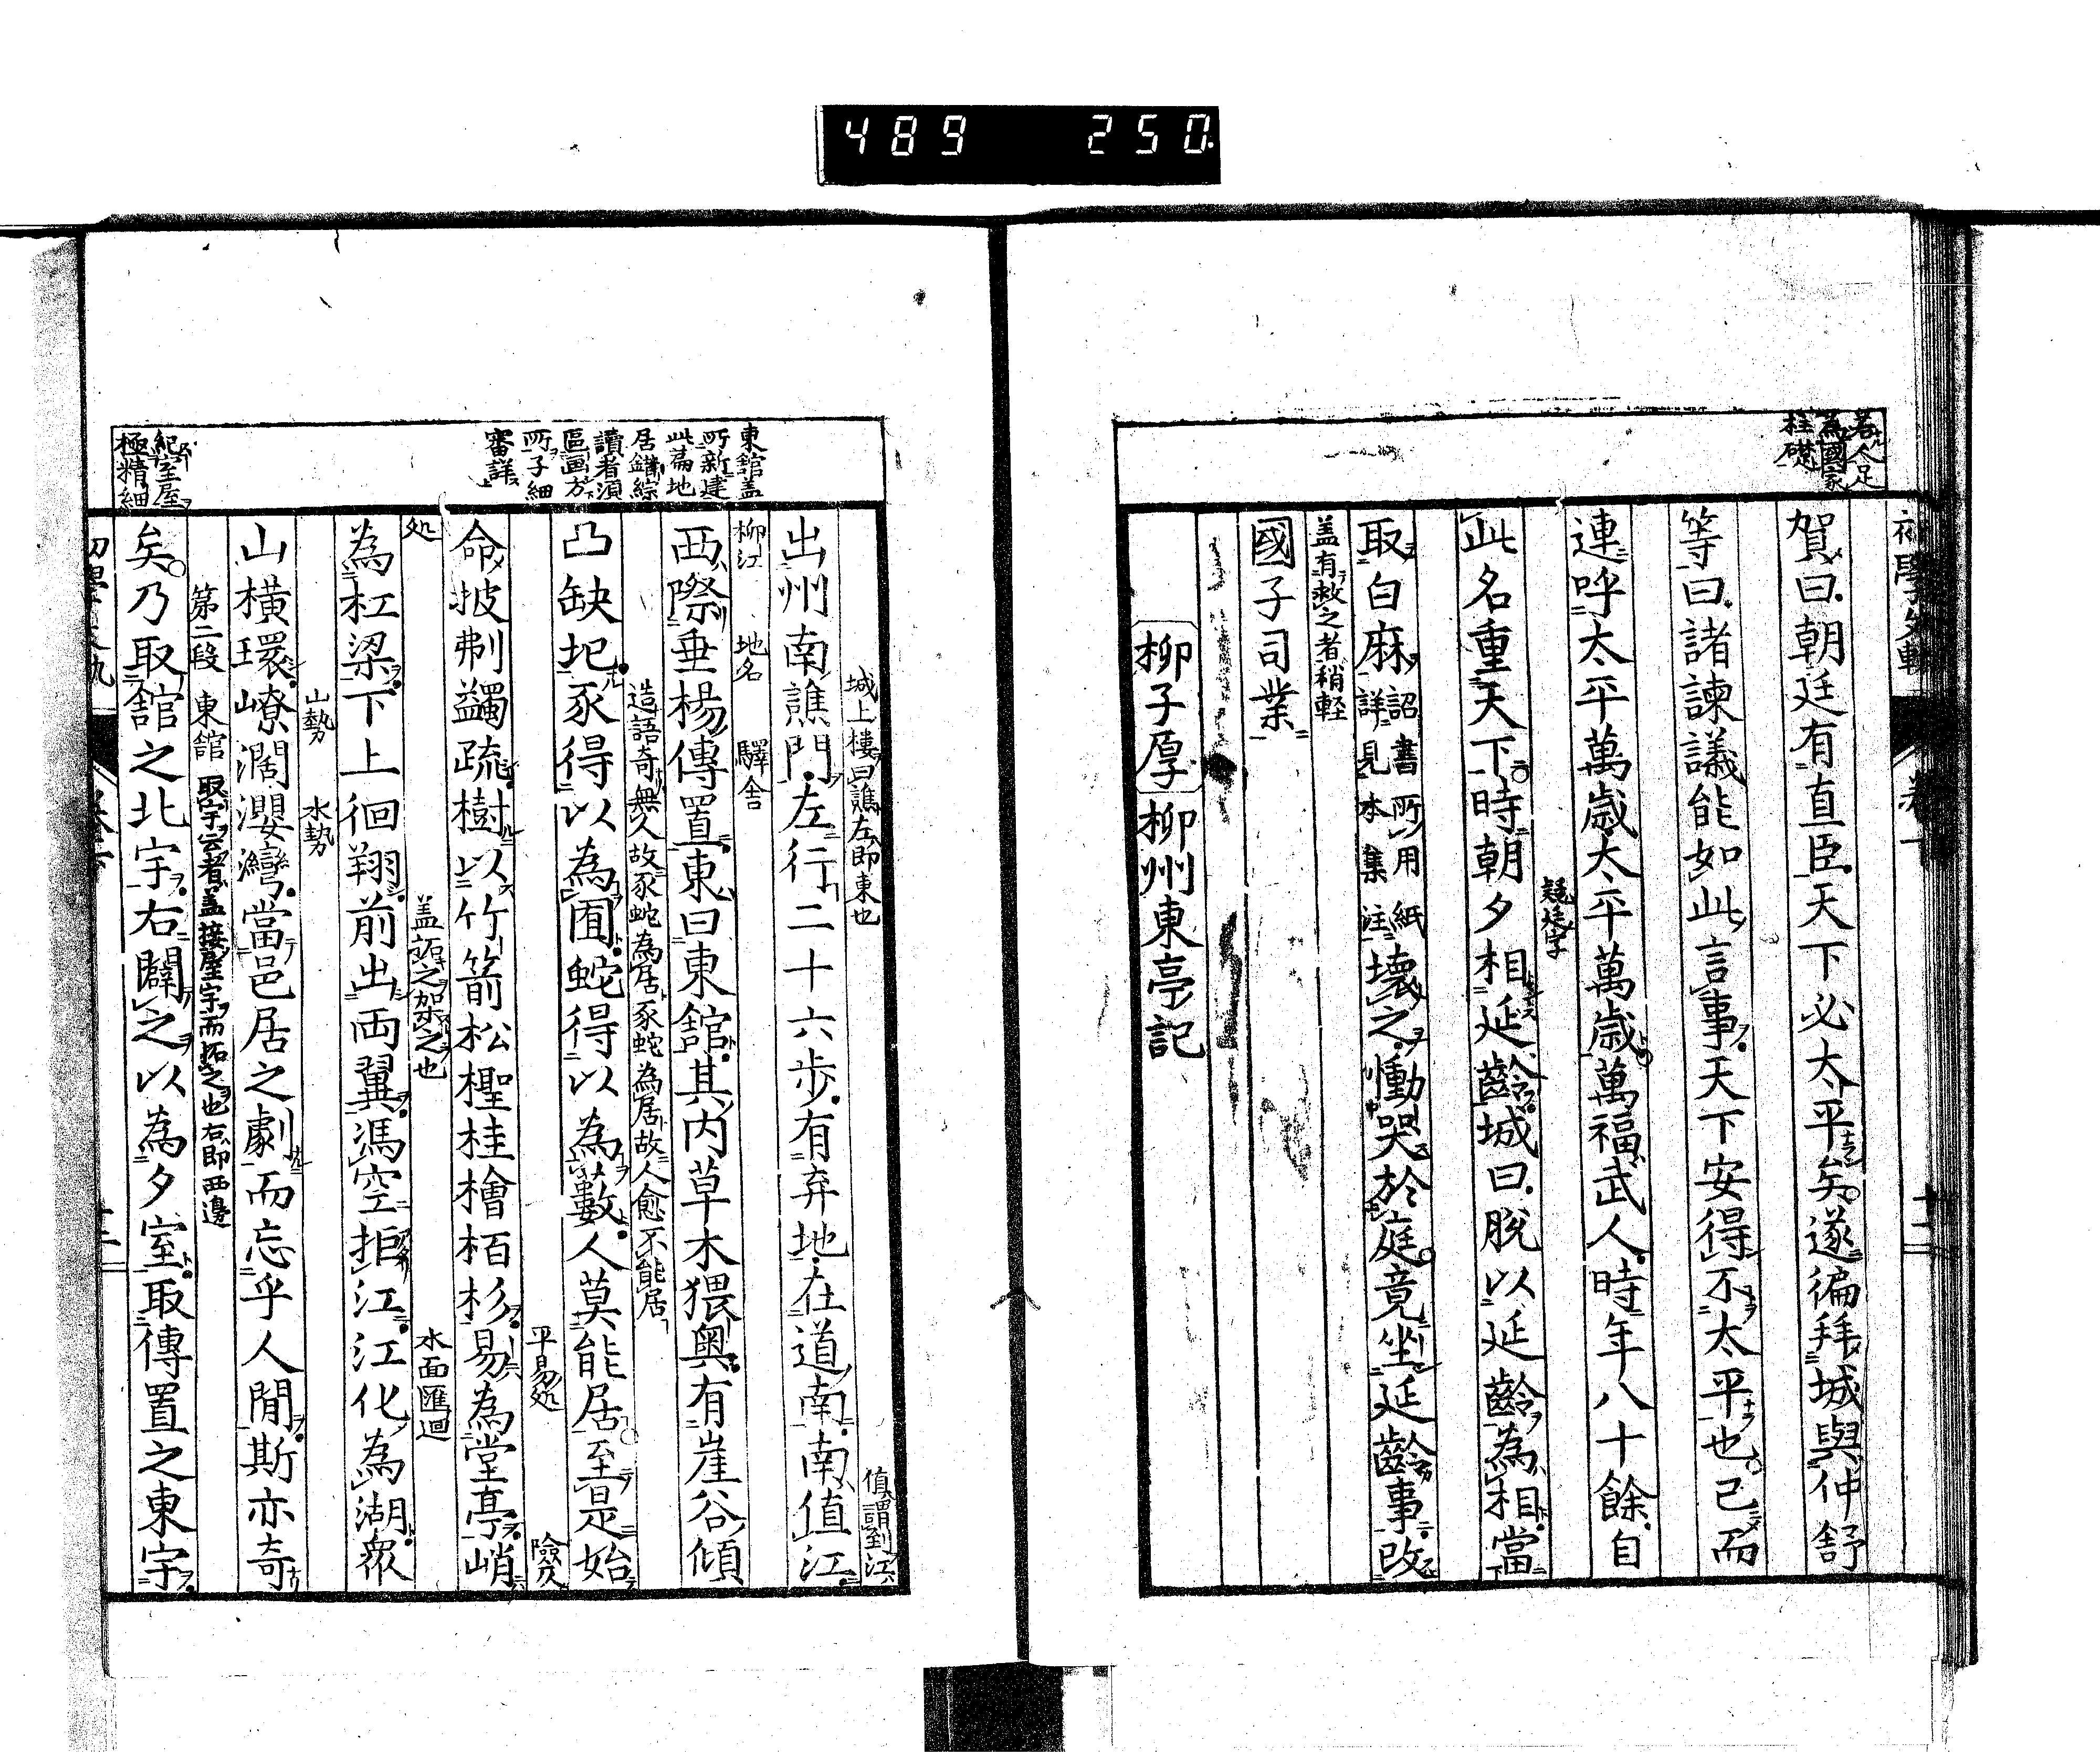 489 250
若人足
為國家
柱礎
賀曰朝廷有直臣天下必太平矣遂徧拜城與仲舒
等曰諸諫議能如此言事天下安得不太平也已而
連呼太平萬歲太平萬歲萬福武人時年八十餘自
疑廷字
此名重天下時朝夕相延齡城曰脫以延齡為相當
取白麻詔書所用紙詳見本集註壞之慟哭於庭竟坐延齡事改
盖有救之者稍輕
國子司業
柳子厚柳州東亭記
東舘盖
所新建
此篇地
居錯綜
讀者須
區画方
所子細
審詳
紀室屋
極精細
城上樓曰譙左即東也
值謂到江
出州南譙門左行二十六步有弃地在道南南值江
柳江 地名 驛舍
西際垂楊傳置東曰東舘其內草木猥奥有崖谷傾
造語奇無人故豕蛇為居豕蛇為居故人愈不能居
凸缺圯豕得以為囿蛇得以為藪人莫能居至是始
平易処 險处
命披刜蠲疏樹以竹箭松檉桂檜栢杉易為堂亭峭
処 盖拓之架之也 水面匯迴
為杠梁下上徊翔前出両翼馮空拒江江化為湖衆
山勢 水勢
山橫環嶛濶瀴灣當邑居之劇而忘乎人間斯亦奇
第二段 東舘 取宇云者盖接屋宇而拓之也右即西邊
矣乃取舘之北宇右闢之以為夕室取傳置之東宇